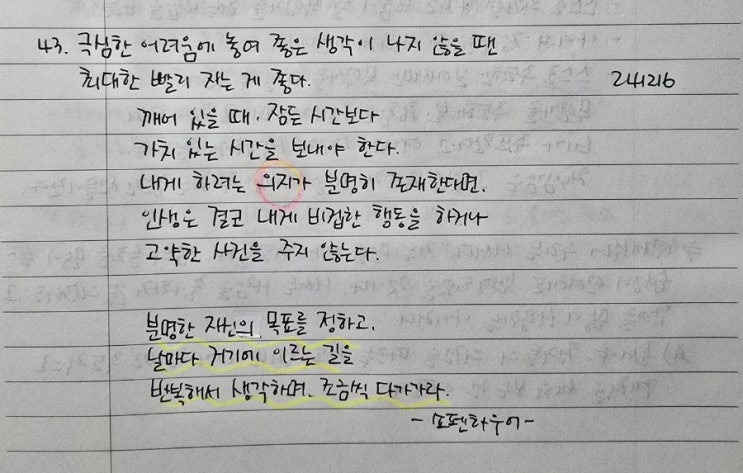 43. 극심한 어려움에 놓여 좋은 생각이 나지 않을 땐
최대한 빨리 자는 게 좋다. 241216
깨어 있을 때, 잠든 시간보다
가치 있는 시간을 보내야 한다.
내게 하려는 의지가 분명히 존재한다면,
인생은 결코 내게 비겁한 행동을 하거나
고약한 사건을 주지 않는다.
분명한 자신의 목표를 정하고,
날마다 거기에 이르는 길을
반복해서 생각하며, 조금씩 다가가라.
- 쇼펜하우어 -